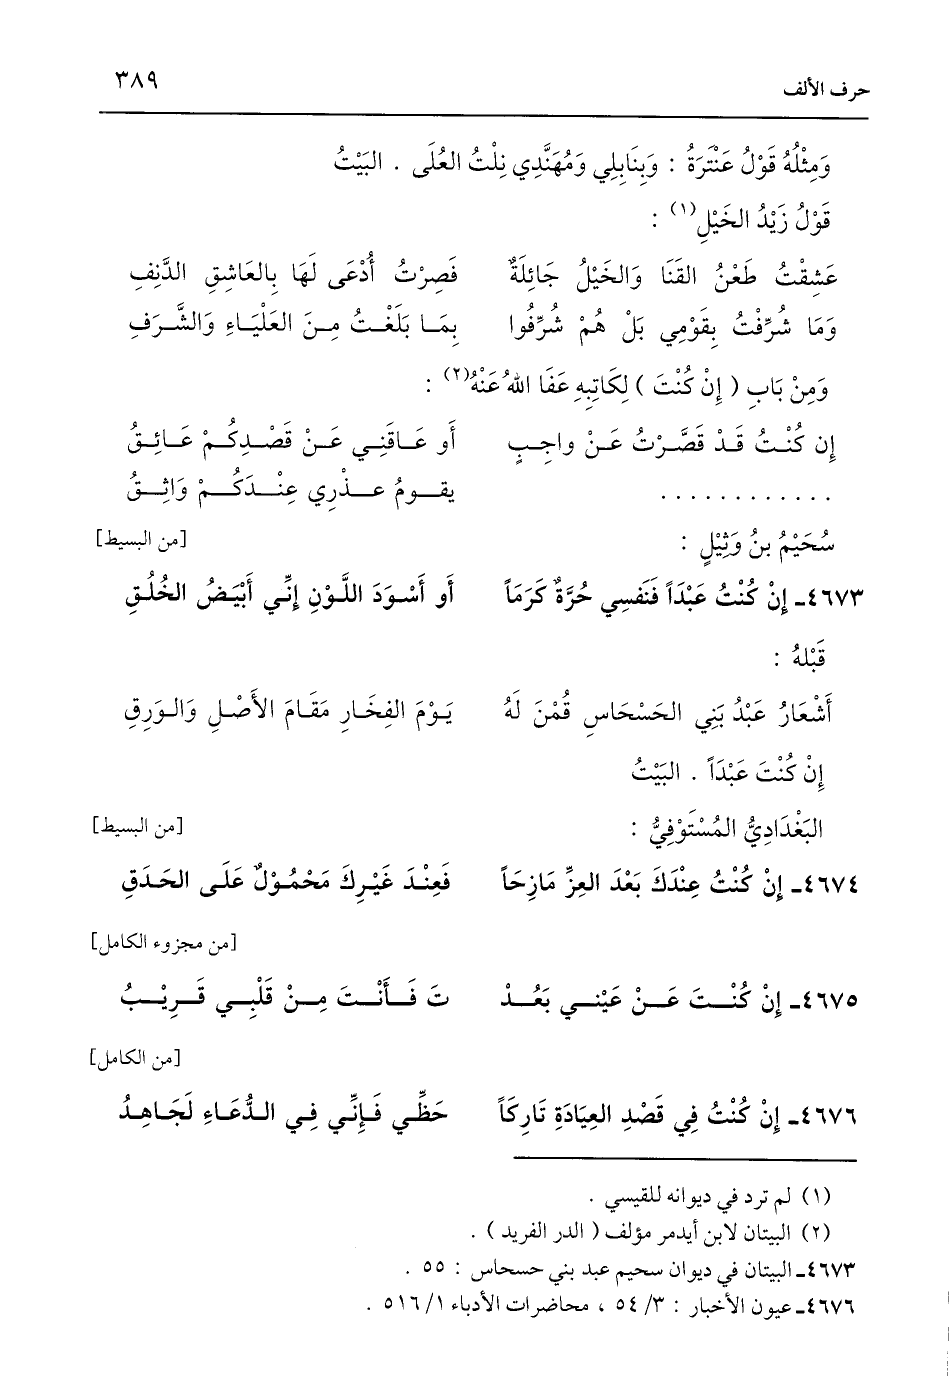 حرف الألف ٣٨٩
وَمِثْلُهُ قَوْلُ عَنْتَرَةُ : وَبِنَابِلِي وَمُهَنَّدِي نِلْتُ العُلَى . البَيْتُ
قَوْلُ زَيْدُ الخَيْلِ(١) :
عَشِقْتُ طَعْنُ القَنَا وَالخَيْلُ جَائِلَةٌ فَصِرْتُ أُدْعَى لَهَا بِالعَاشِقِ الدَّنِفِ
وَمَا شُرِّفْتُ بِقَوْمِي بَلْ هُمْ شُرِّفُوا بِمَا بَلَغْتُ مِنَ العَلْيَاءِ وَالشَّرَفِ
وَمِنْ بَابِ ( إِنْ كُنْتَ ) لِكَاتِبِهِ عَفَا اللهُ عَنْهُ(٢) :
إِن كُنْتُ قَدْ قَصَّرْتُ عَنْ واجِبٍ أَو عَاقَنِي عَنْ قَصْدِكُمْ عَائِقُ
. . . . . . . . . . . . يقومُ عذْرِي عِنْدَكُمْ وَاثِقُ
سُحَيْمُ بنُ وَثِيْلٍ : [من البسيط]
٤٦٧٣ـ إِنْ كُنْتُ عَبْدَاً فَنَفسِي حُرَّةٌ كَرَمَاً أَو أَسْوَدَ اللَّوْنِ إِنِّي أَبْيَضُ الخُلُقِ
قَبْلهُ :
أَشْعَارُ عَبْدُ بَنِي الحَسْحَاسِ قُمْنَ لَهُ يَوْمَ الفِخَارِ مَقَامَ الأَصْلِ وَالوَرِقِ
إِنْ كُنْتَ عَبْدَاً . البَيْتُ
البَغْدَادِيُّ المُسْتَوْفِيُّ : [من البسيط]
٤٦٧٤ـ إِنْ كُنْتُ عِنْدَكَ بَعْدَ العِزِّ مَازِحَاً فَعِنْدَ غَيْرِكَ مَحْمُوْلٌ عَلَى الحَدَقِ
[من مجزوء الكامل]
٤٦٧٥ـ إِنْ كُنْتَ عَنْ عَيْنِي بَعُدْ تَ فَأَنْتَ مِنْ قَلْبِي قَرِيْبُ
[من الكامل]
٤٦٧٦ـ إِنْ كُنْتُ فِي قَصْدِ العِيَادَةِ تَارِكَاً حَظِّي فَإِنِّي فِي الدُّعَاءِ لَجَاهِدُ
(١) لم ترد في ديوانه للقيسي .
(٢) البيتان لابن أيدمر مؤلف ( الدر الفريد ) .
٤٦٧٣ـ البيتان في ديوان سحيم عبد بني حسحاس : ٥٥ .
٤٦٧٦ـ عيون الأخبار : ٣/ ٥٤ ، محاضرات الأدباء ١/ ٥١٦ .